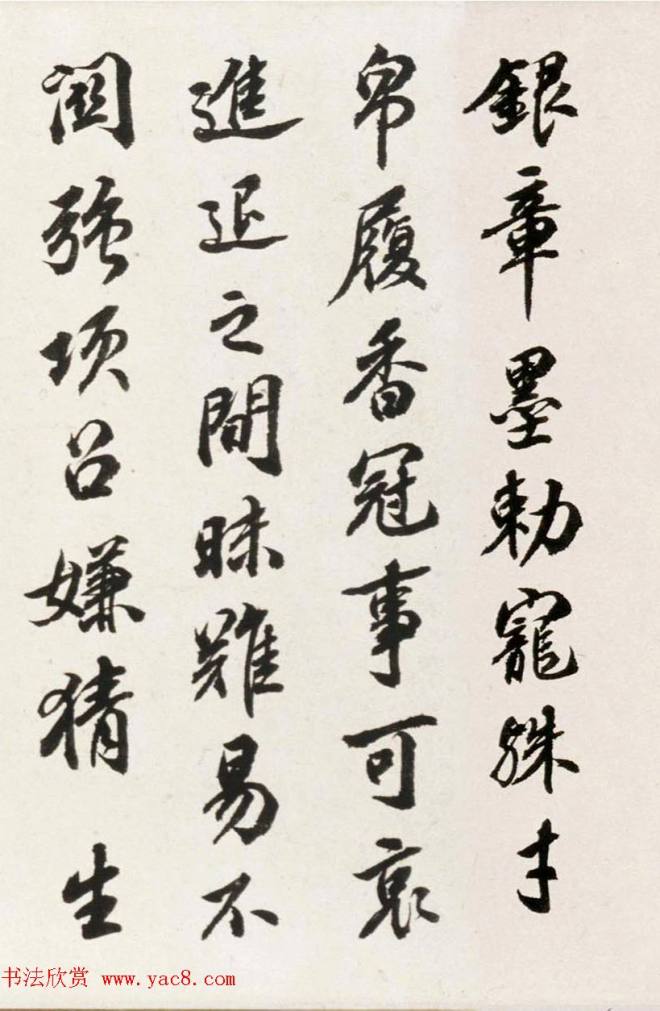 銀章墨勅寵殊才
帛履香冠事可哀
進退之間昧難易不
関强項召嫌猜 生
书法欣赏 www.yac8.com